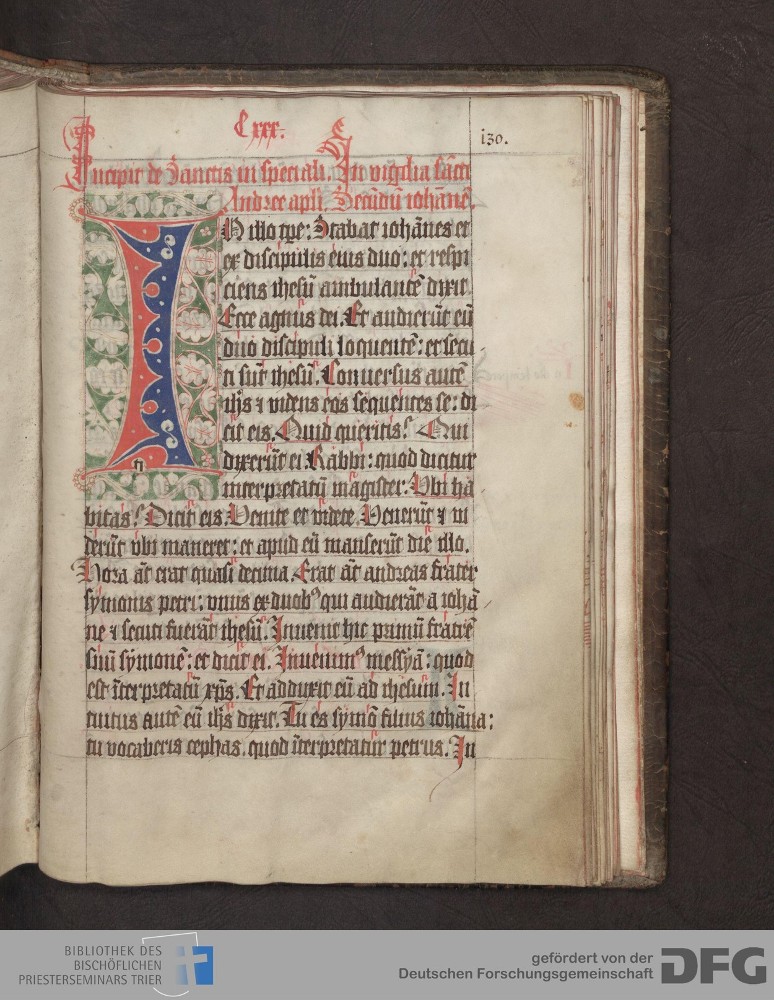 Cxxx.
130.
Incipit de Sanctis in speciali. In vigilia sācti
Andree apli. Secūdū iohānē.
IN illo tp̄e: Stabat iohānes et
ex discipulis eius duo: et respi
ciens ihesū ambulantē dixit.
Ecce agnus dei. Et audierūt eū
duo discipuli loquentē: et secu
ti sūt ihesū. Conuersus autē
ih̄s ⁊ videns eos sequentes se: di
cit eis. Quid queritis? Qui
dixerūt ei. Rabbi: quod dicitur
interpretatū magister. Vbi ha
bitas? Dicit eis. Venite et videte. Venerūt ⁊ vi
derūt vbi maneret: et apud eū manserūt die illo.
Hora āt erat quasi decima. Erat āt andreas frater
symonis petri: vnus ex duobꝰ qui audierāt a iohā
ne ⁊ secuti fuerāt ihesū. Inuenit hic primū fratrē
suū symonē: et dicit ei. Inuenimꝰ messyā: quod
est īterpretatū xp̄s. Et adduxit eū ad ihesum. In
tuitus autē eū ih̄s dixit. Tu es symō filius iohāna:
tu vocaberis cephas. quod īterpretatur petrus. In
BIBLIOTHEK DES
BISCHÖFLICHEN
PRIESTERSEMINARS TRIER
gefördert von der
Deutschen Forschungsgemeinschaft
DFG